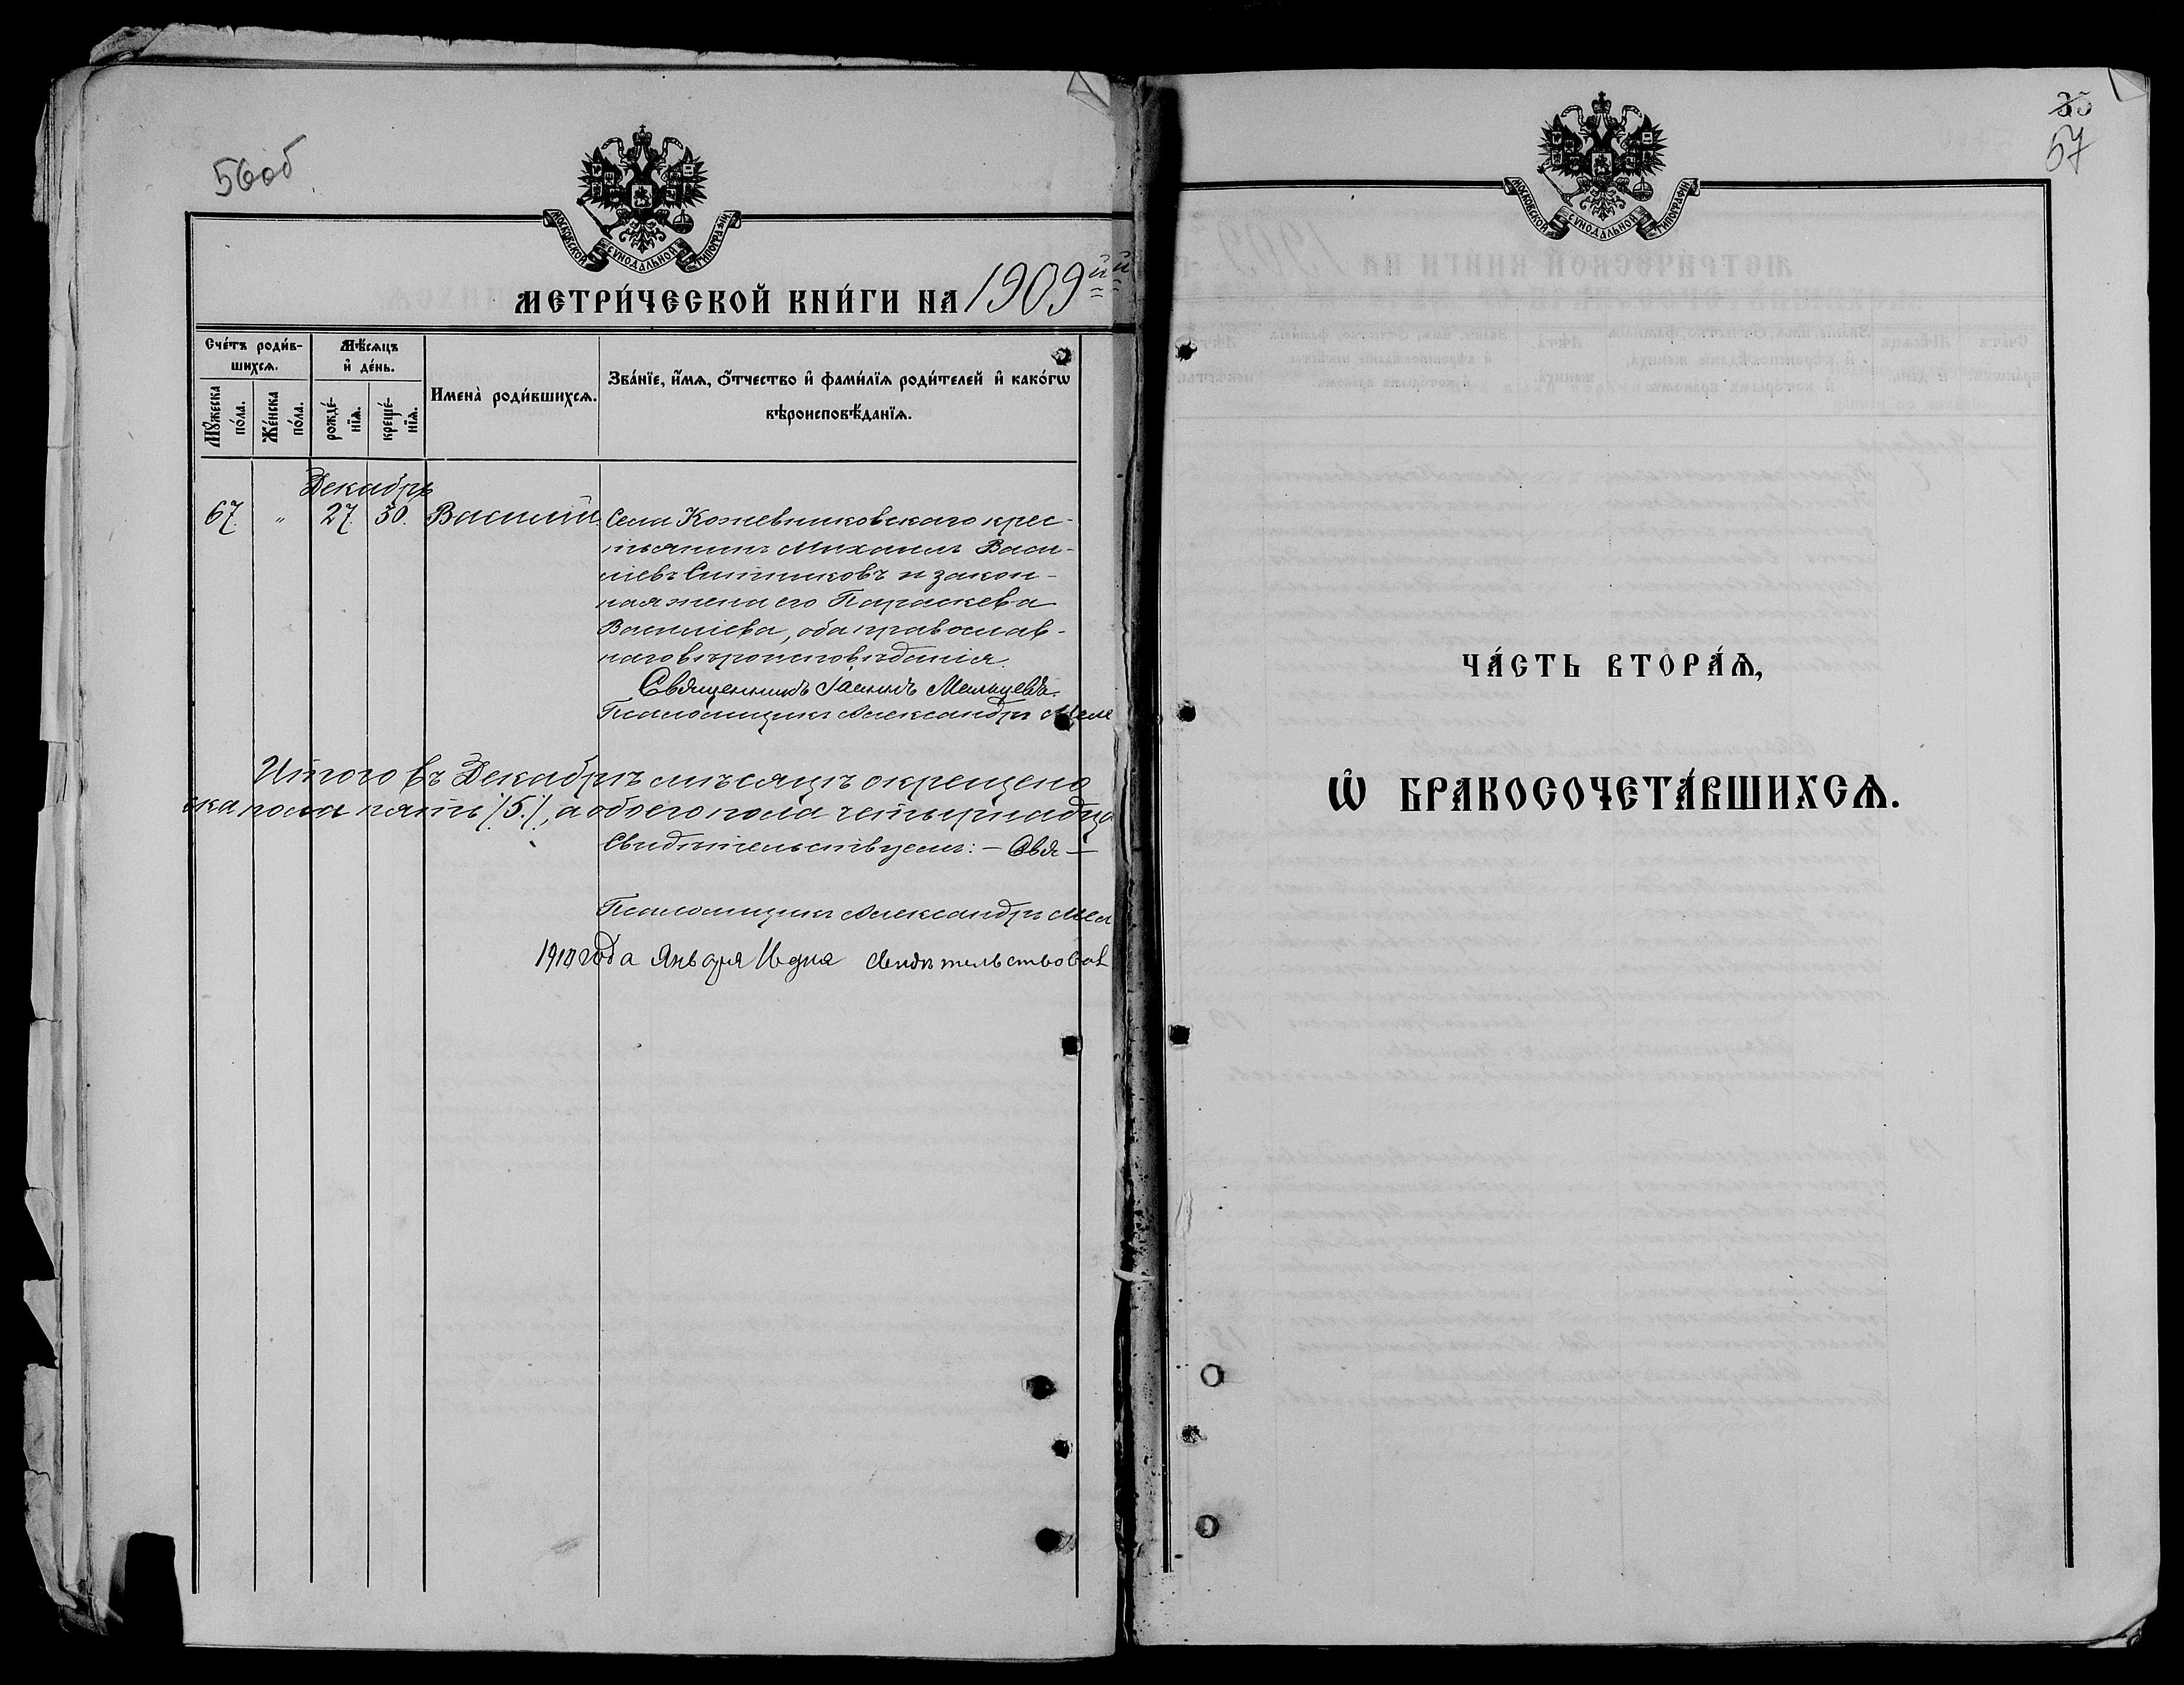 56об
МОСКОВСКОЙ СѴНОДАЛЬНОЙ ТИПОГРАФІИ
МЕТРИ́ЧЕСКОЙ КНИ́ГИ НА 1909ый
Сче́тъ роди́в-
шихсѧ.
Мꙋ́жеска
по́ла.
Же́нска
по́ла.
Мѣ́сѧцъ
и҆ де́нь.
рожде́-
нїѧ.
креще́-
нїѧ.
Имена̀ роди́вшихсѧ.
Зва́нїе, и҆́мѧ, ѻ҆́тчество и҆ фами́лїѧ роди́телей и҆ како́гѡ
вѣроисповѣ́данїѧ.
Декабрь
67. " 27. 30. Василій. Села Кожевниковскаго крес-
тьянинъ Михаилъ Васи-
ліевъ Ситниковъ и закон-
ная жена его Параскева
Василіева, оба православ-
наго вѣроисповѣданія.
Священникъ Іаковъ Мальцевъ.
Псаломщикъ Александръ Мел
Итого въ Декабрѣ мѣсяцѣ окрещено
ска пола пять /5./, а обоего пола четырнадца
Свидѣтельствуемъ: – Свя –
Псаломщикъ Александръ Мел
1910 года Января дня свидѣтельствовал
35
57
МОСКОВСКОЙ СѴНОДАЛЬНОЙ ТИПОГРАФІИ
ЧА́СТЬ ВТОРА́Ѧ,
Ѡ҆ БРАКОСОЧЕТА́ВШИХСѦ.